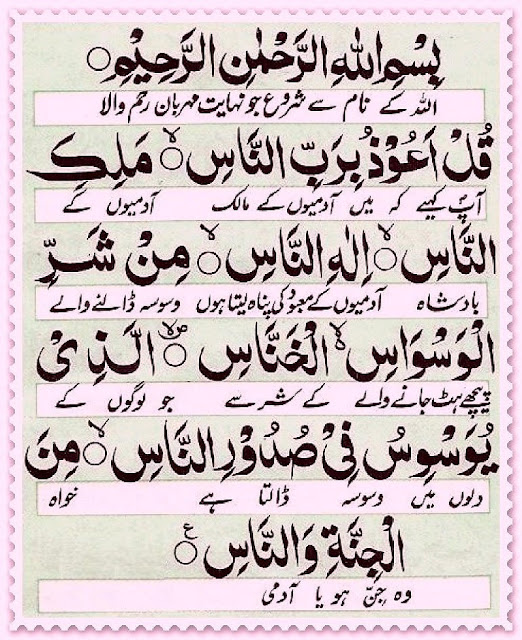 بِسْمِ اللهِ الرَّحْمٰنِ الرَّحِيْمِ ○
اللہ کے نام سے شروع جو نہایت مہربان رحم والا
قُلْ اَعُوْذُ بِرَبِّ النَّاسِ ۙ○ مَلِكِ
آپؐ کہیے کہ میں آدمیوں کے مالک آدمیوں کے
النَّاسِ ۙ○ اِلٰهِ النَّاسِ ۙ○ مِنْ شَرِّ
بادشاہ آدمیوں کے معبود کی پناہ لیتا ہوں وسوسہ ڈالنے والے
الْوَسْوَاسِ ۙ الْخَنَّاسِ ۪ۙ○ الَّذِيْ
پیچھے ہٹ جانے والے کے شر سے جو لوگوں کے
يُوَسْوِسُ فِيْ صُدُوْرِ النَّاسِ ۙ○ مِنَ
دلوں میں وسوسہ ڈالتا ہے خواہ
الْجِنَّةِ وَالنَّاسِ ○ع
وہ جنّ ہو یا آدمی